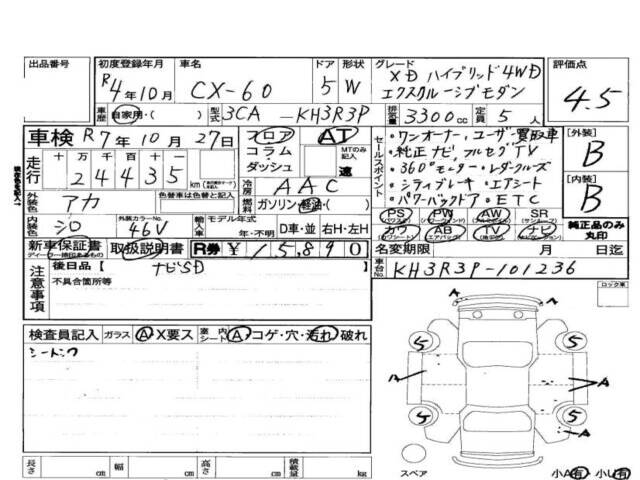 出品番号
初度登録年月 車名 ドア 形状 グレード 評価点
R4年10月 CX-60 5 W XD ハイブリッド4WD
エクスクルーシブモダン
4.5
車歴 自家用・( ) 型式 3CA-KH3R3P 排気量 3300cc 定員 5人
車検 R7年10月27日 フロア AT
コラム・ダッシュ MTのみ記入 速
走行 十万 万 千 百 十 km
2 4 4 3 5
冷房 AAC
外装色 アカ 色替車は色替と記入
燃料 ガソリン・軽油・( )
内装色 シロ 外装カラーNo. 46V 輸入車 モデル年式 年・不明 D車・並 右H・左H
新車保証書 取扱説明書 R券 ¥15,890
セールスポイント
・ワンオーナー、ユーザー買取車
・純正ナビ,フルセグTV
・360°モニター・レーダークルーズ
・シティブレーキ・エアシート
・パワーバックドア・ETC
[外装] B
[内装] B
PS PW AW SR
カワ AB TV ナビ
純正品のみ丸印
名変期限 月 日迄
車台No. KH3R3P-101236
注意事項 後日品【 ナビSD 】
不具合箇所等
検査員記入 ガラス A・X要ス 室内シート A・コゲ・穴・汚れ・破れ
ロック車
A A
5 5
A A
5 5
A
スペア
小A有・小U有
長さ cm 幅 cm 高さ cm 積載量 kg